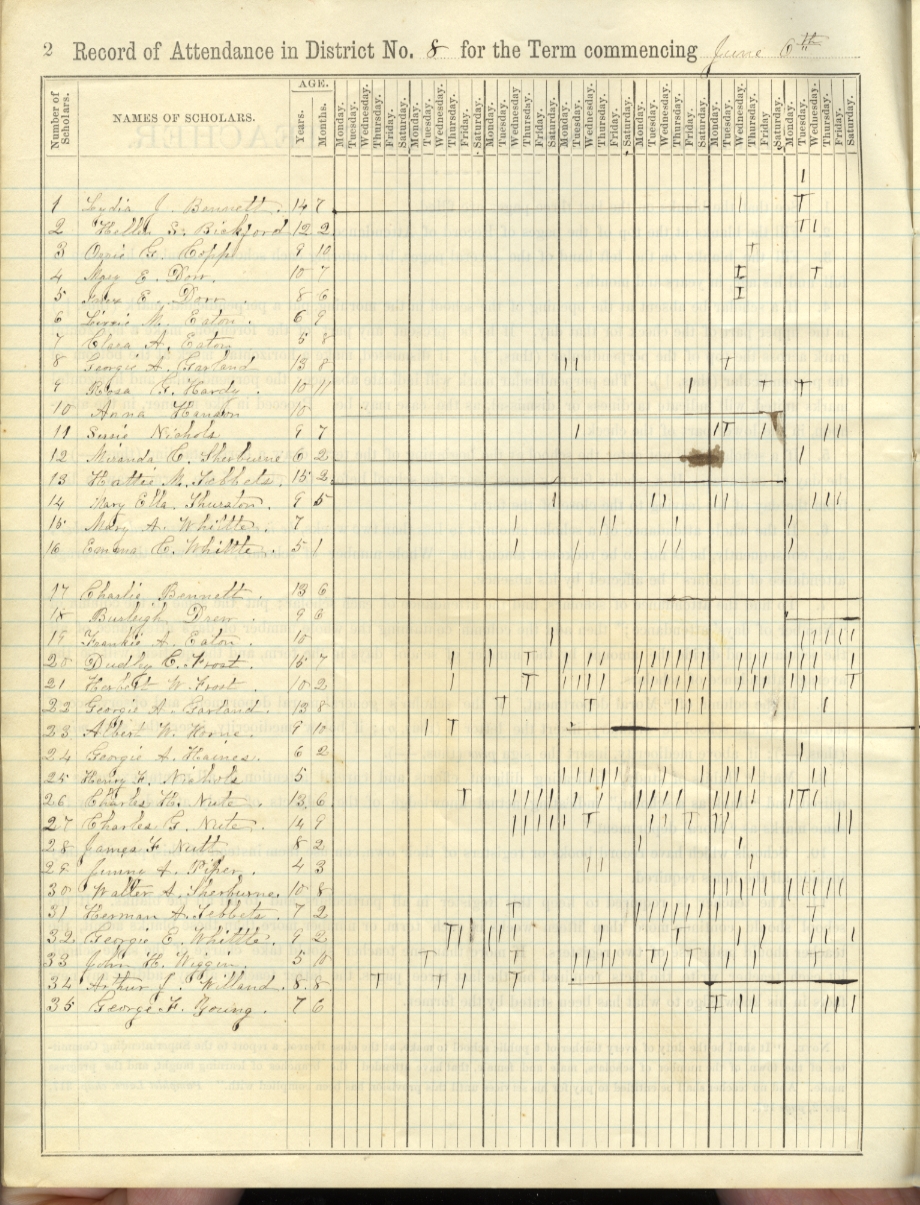 2 Record of Attendance in District No. 8 for the Term commencing June 6th
Number of Scholars. NAMES OF SCHOLARS. AGE. Years. Months. Monday. Tuesday. Wednesday. Thursday. Friday. Saturday. Monday. Tuesday. Wednesday. Thursday. Friday. Saturday. Monday. Tuesday. Wednesday. Thursday. Friday. Saturday. Monday. Tuesday. Wednesday. Thursday. Friday. Saturday. Monday. Tuesday. Wednesday. Thursday. Friday. Saturday. Monday. Tuesday. Wednesday. Thursday. Friday Saturday. Monday. Tuesday. Wednesday. Thursday. Friday. Saturday.
1 Lydia J. Bennett. 14 7 T
2 S. Bickford 12 2 T
3 G. Copp 9 10 T
4 Mary E. Dorr. 10 7 I T
5 E. Dorr. 8 6 I
6 Lizzie M. Eaton. 6 9
7 Clara A. Eaton 5 8
8 Georgie A. Garland 13 8 T
9 Rosa G. Hardy. 10 11 T T
10 Anna Hanson 10
11 Susie Nichols 9 7 T
12 Miranda C. Sherburne 6 2
13 Hattie M. Tebbets. 15 2
14 Mary Ella Thurston. 9 5
15 Mary A. Whittle. 7
16 Emma C. Whittle. 5 1
17 Charlie Bennett. 13 6
18 Burleigh Drew. 9 6
19 Frankie A. Eaton. 10
20 Dudley C. Frost. 15 7 T
21 Herbert W. Frost. 10 2 T T
22 Georgie A. Garland. 13 8 T T
23 Albert W. Horne. 9 10 T
24 Georgie A. Haines. 6 2
25 Henry F. Nichols 5
26 Charles H. Nute. 13 6 T T
27 Charles G. Nute. 14 9 T T
28 James F. Nutt 8 2
29 A. Piper. 4 3
30 Walter A. Sherburne. 10 8
31 Herman A. Tebbets. 7 2 T T
32 Georgie E. Whittle. 9 2 T T
33 John H. Wiggin. 5 10 T T T T T
34 Arthur J. Willand. 8 8 T T T
35 George F. Young. 7 6 I